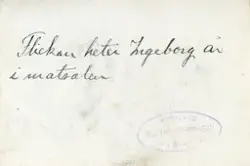 Flickan heter Ingeborg är
i matsalen